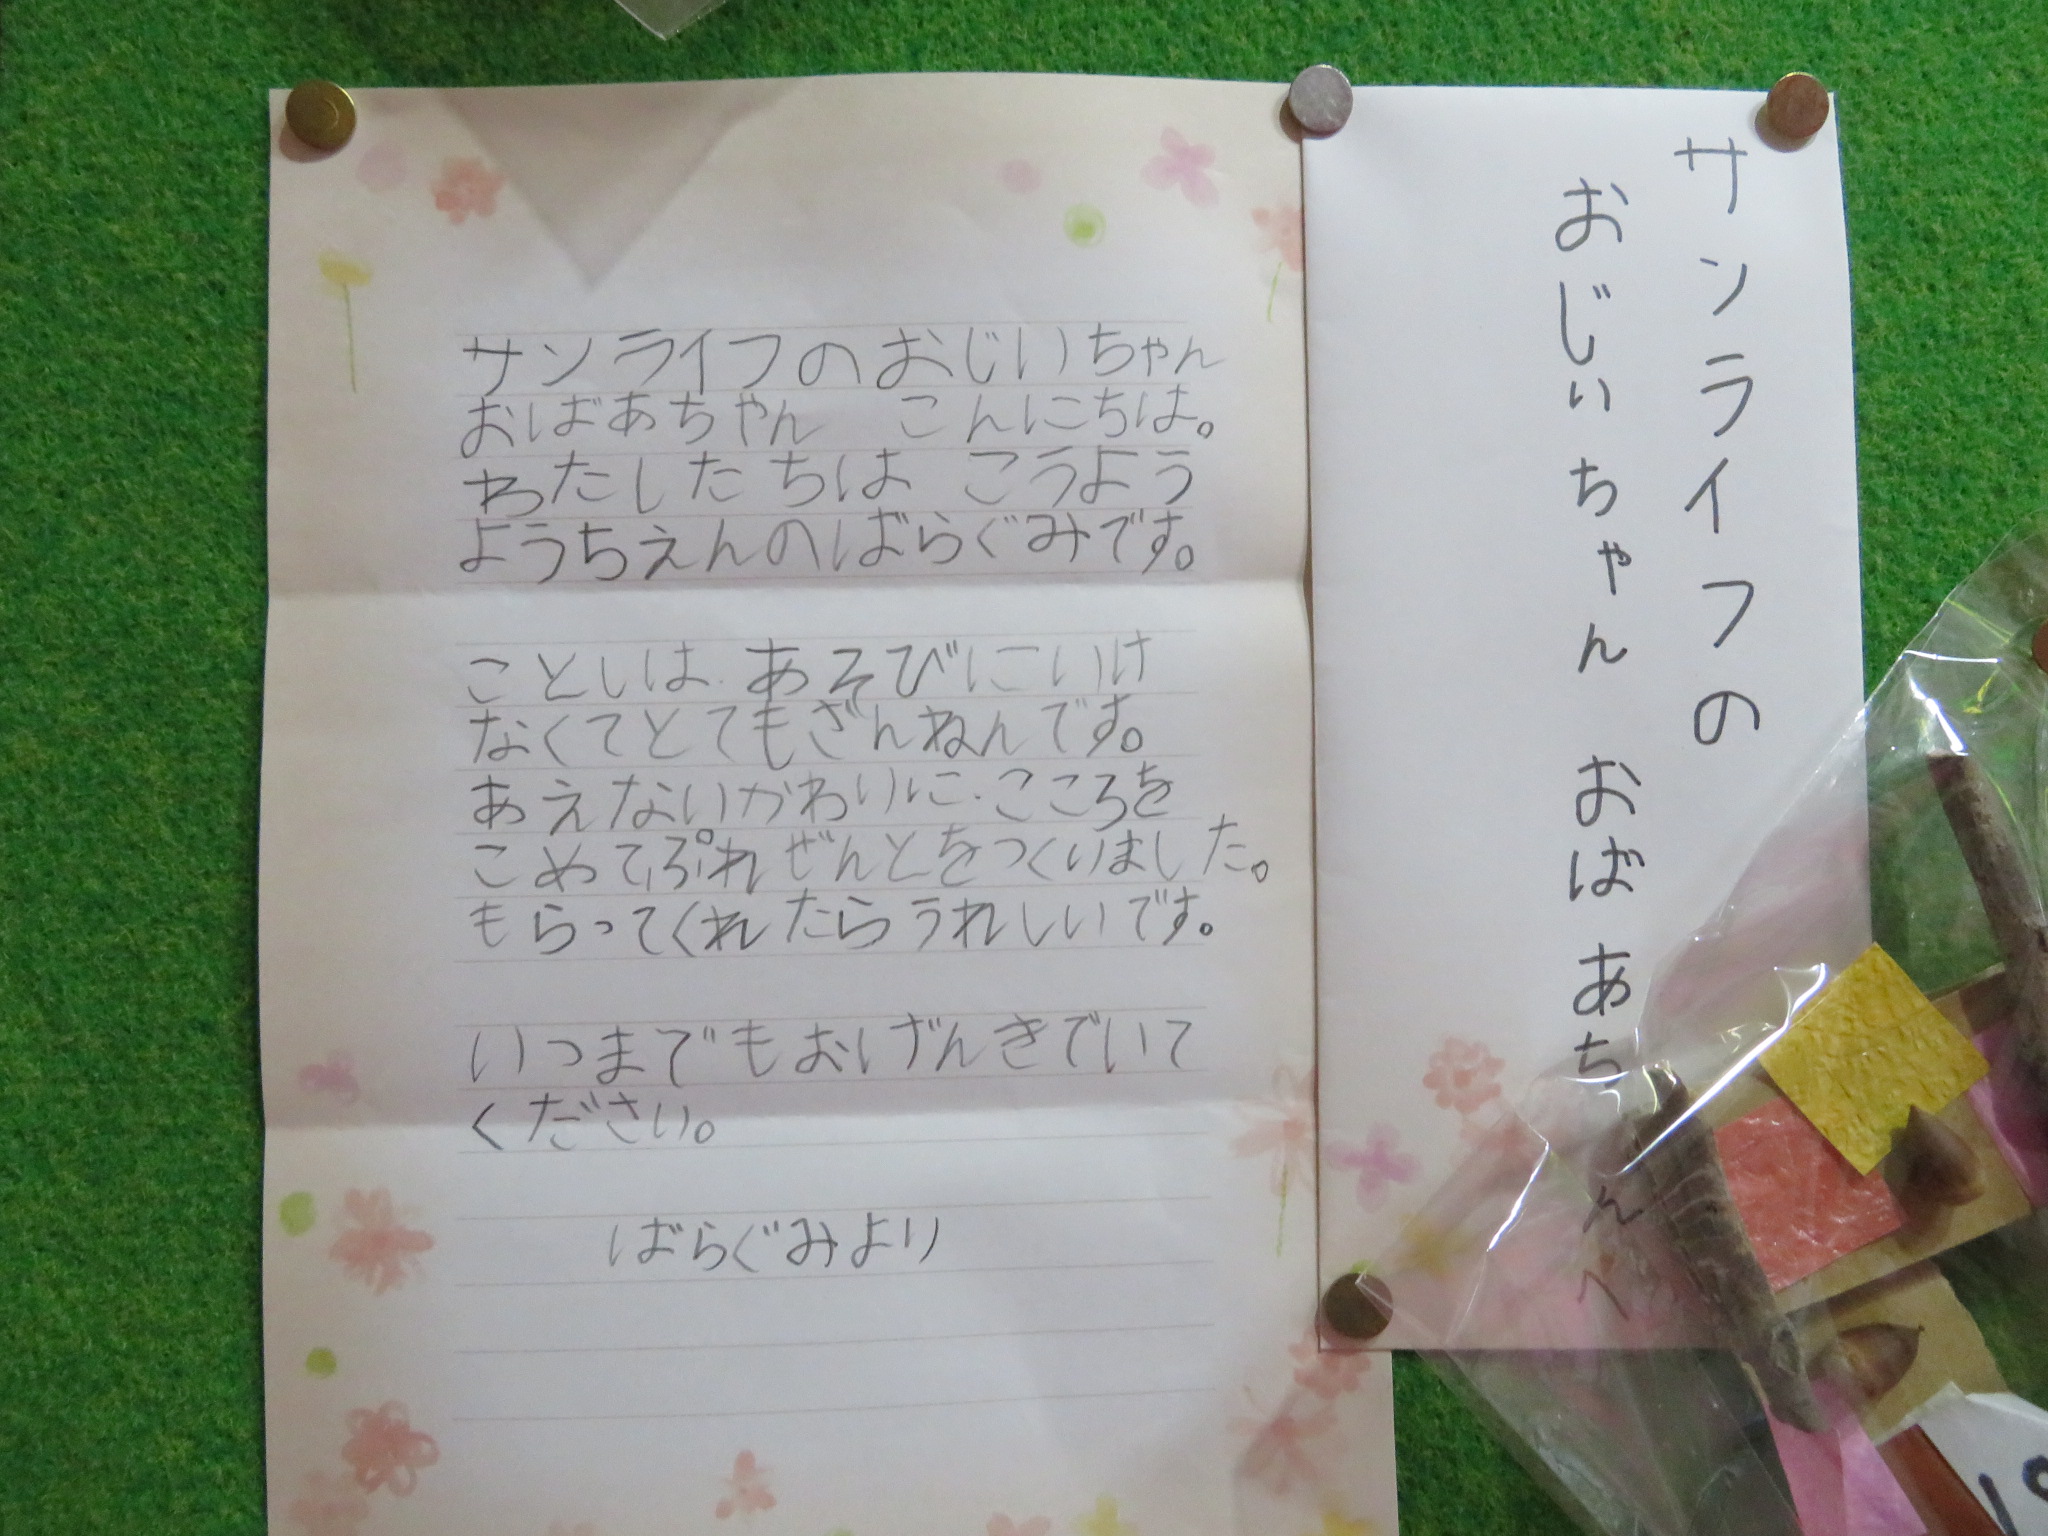 サンライフのおじいちゃん
おばあちゃん　こんにちは。
わたしたちは　こうよう
ようちえんのばらぐみです。
ことしは、あそびにいけ
なくてとてもざんねんです。
あえないかわりに、こころを
こめてぷれぜんとをつくりました。
もらってくれたらうれしいです。
いつまでもおげんきでいて
ください。
ばらぐみより
サンライフの
おじいちゃん　おばあちゃんへ